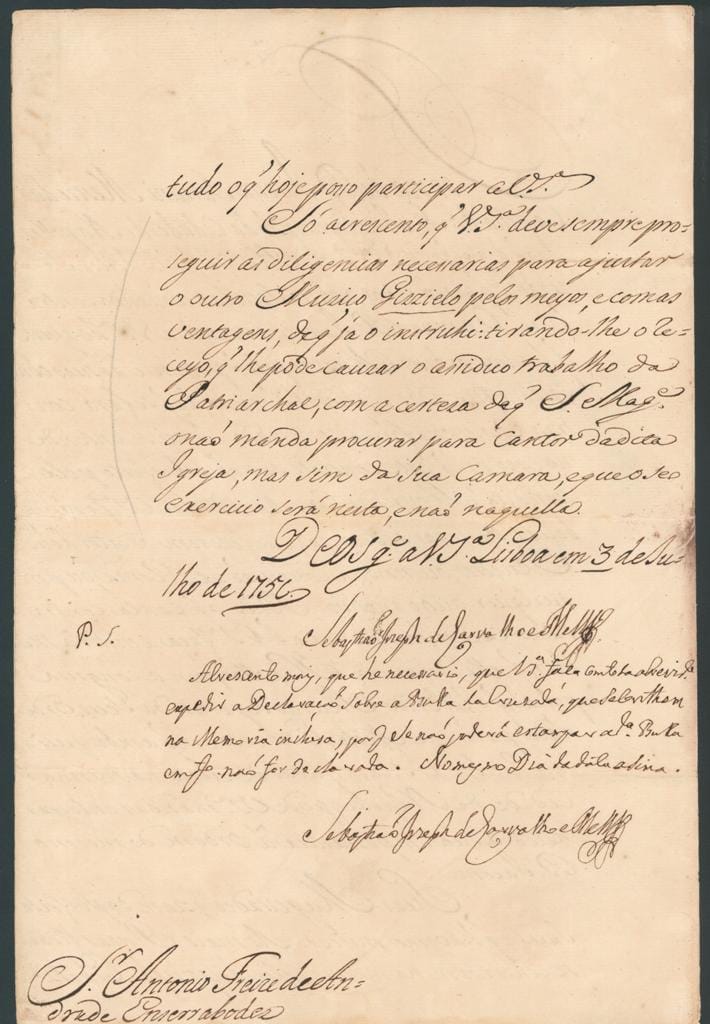 tudo oq̃ hoje posso participar a V.S.ª
Só acrescento, q̃ V.S.ª deve sempre pro=
seguir as diligencias necessarias para ajustar
o outro Musico Gizzielo pelos meyos, e com as
ventagens, de q̃ já o instruhi: tirando-lhe o re=
ceyo, q̃ lhe póde causar o assiduo trabalho da
Patriarchal, com a certeza de q̃ S. Mag.e
o naõ manda procurar para Cantor da dita
Igreja, mas sim da sua Camara, e que o seo
exercicio será nesta, e naõ naquella.
DEOS g.e a V.S.ª Lisboa em 3 de Ju=
lho de 1751.
Sebastiaõ Joseph de Carvalho e Mello
P. S.
Acresento mais, que he necessario, que V.S.ª faça com toda a brevid.e
expedir a Declaraçaõ sobre a Bulla da Cruzada, que se
na Memoria inclusa, porq̃ se naõ poderá estampar a d.ª Bulla
em q.to naõ for declarada. No mesmo Dia da data asima.
Sebastiaõ Joseph de Carvalho e Mello
S.r Antonio Freire de An=
drade Enserrabodez